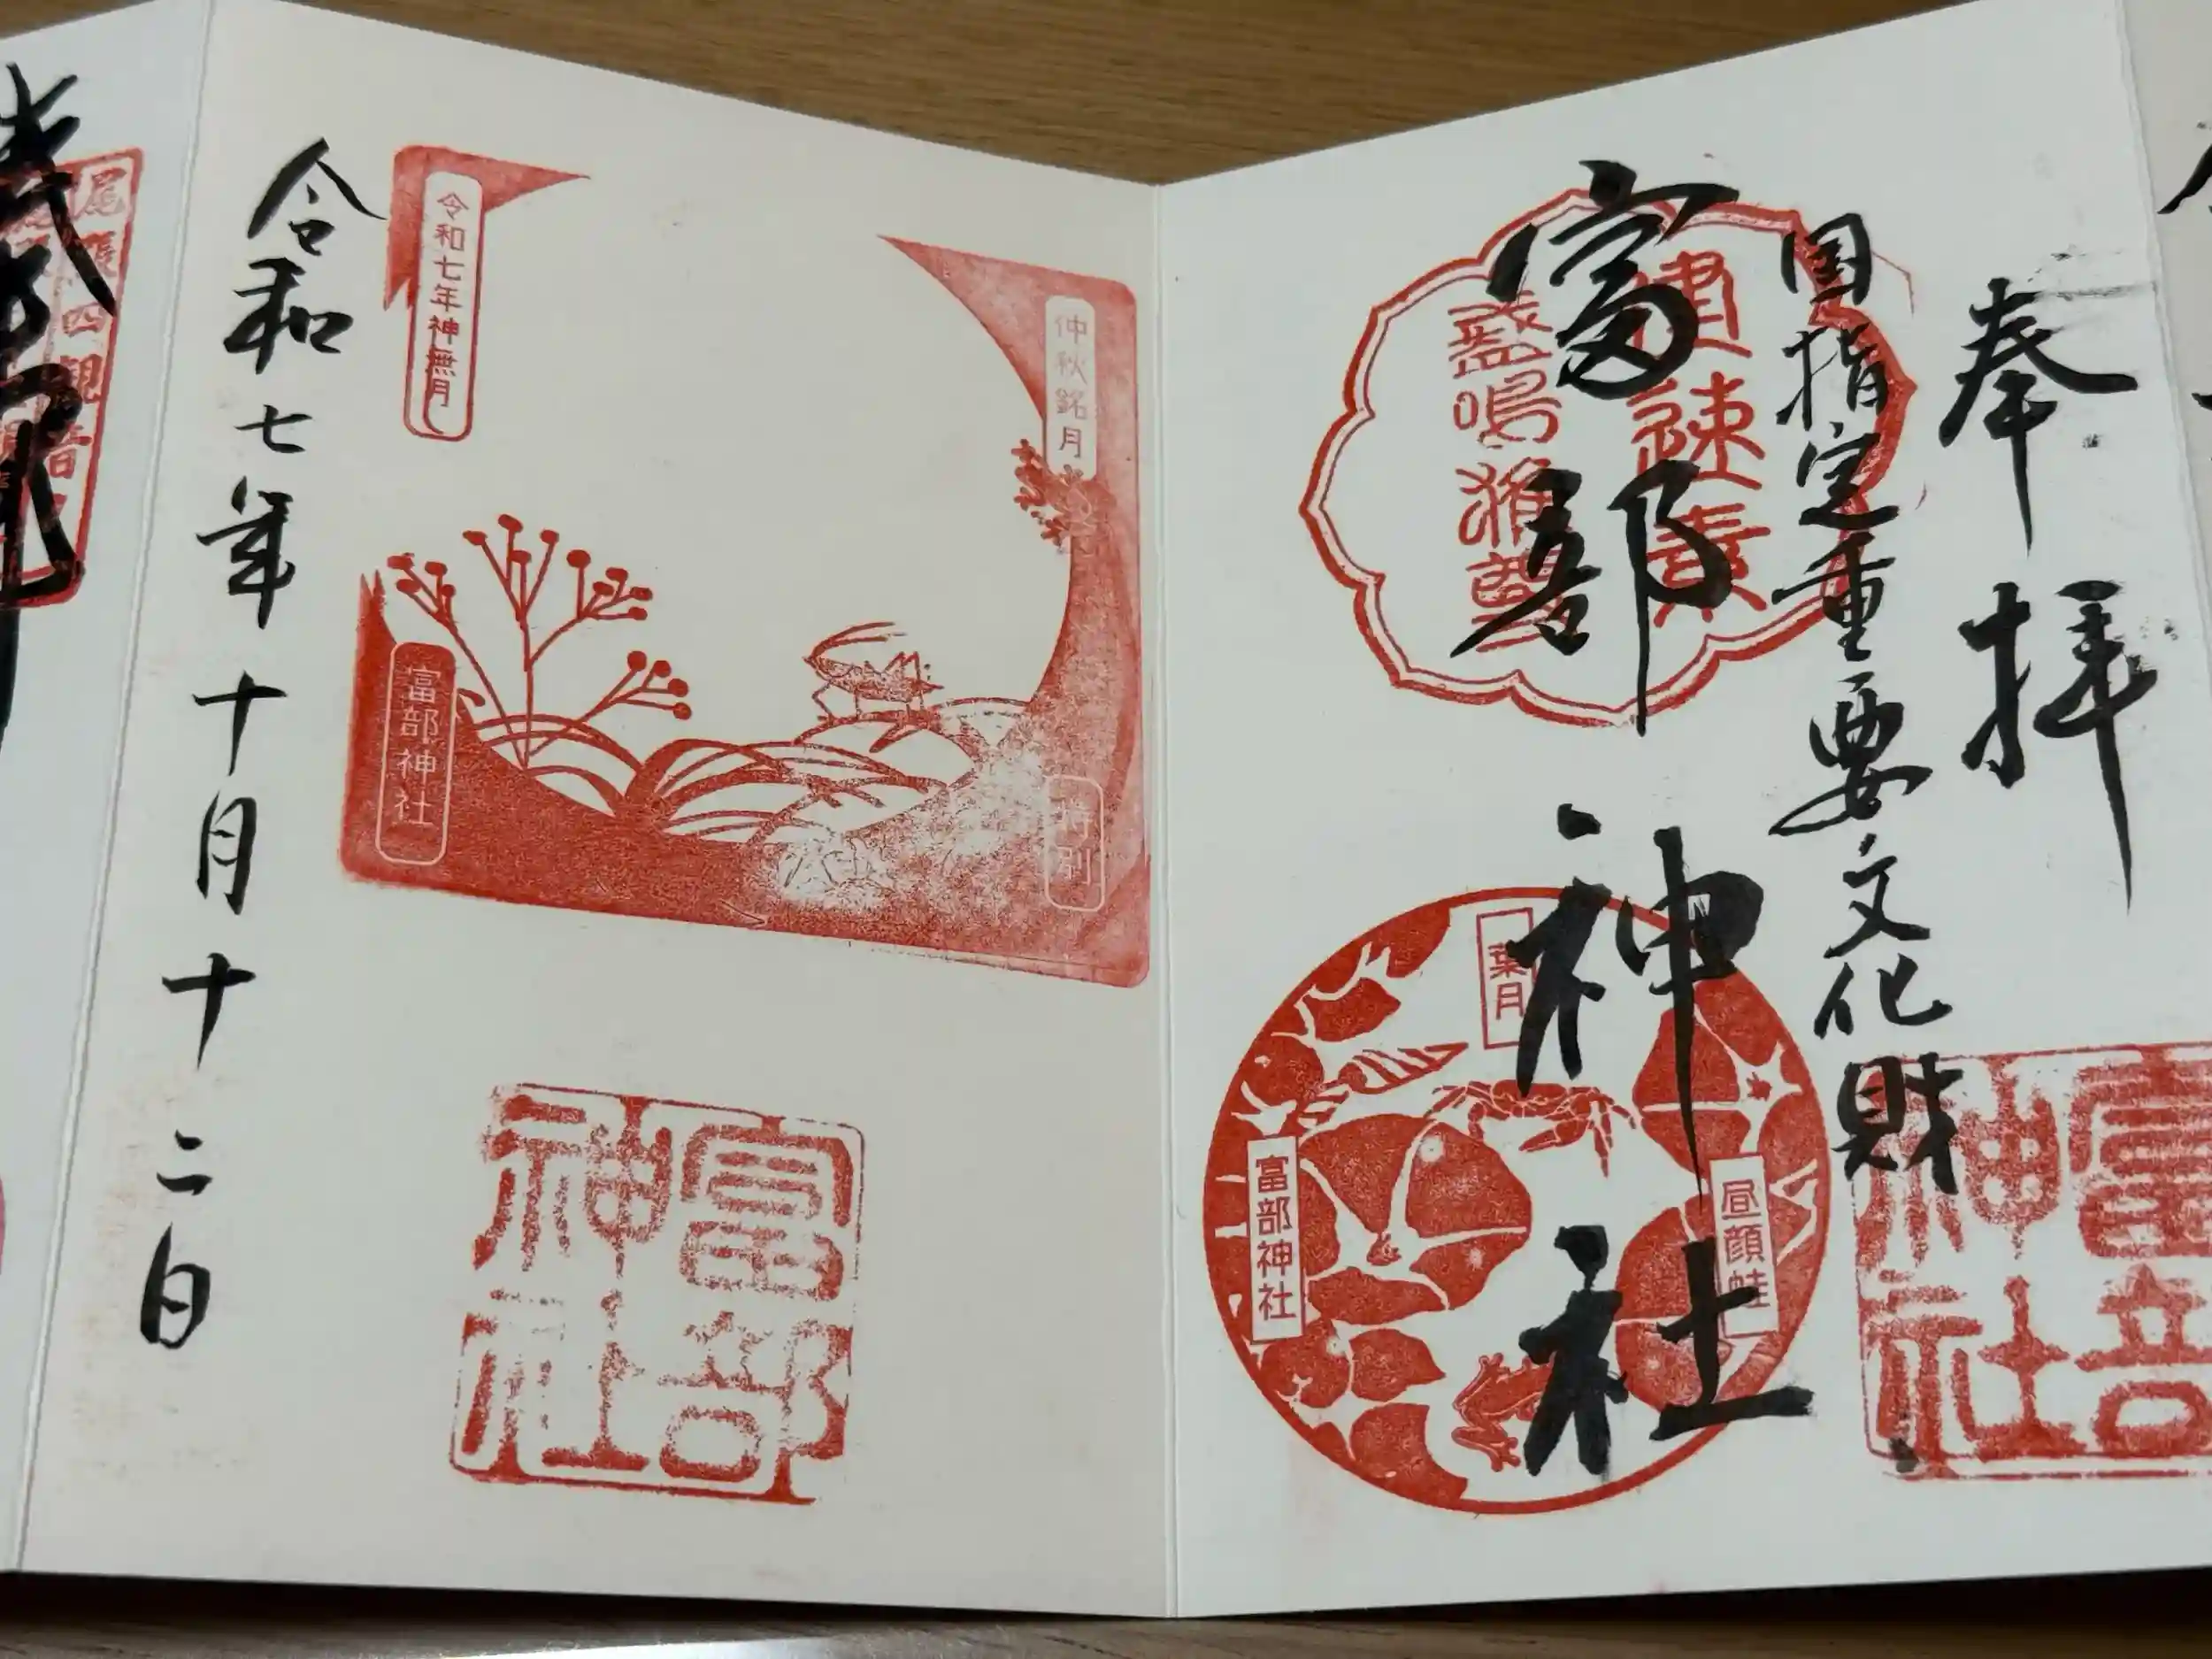 奉拝
国指定重要文化財
富部神社
建速素
盞嗚雅尊
葉月
昼顔蛙
富部神社
富部
神社
仲秋銘月
特別
令和七年神無月
富部神社
富部
神社
令和七年十月十二日
尾張四観音